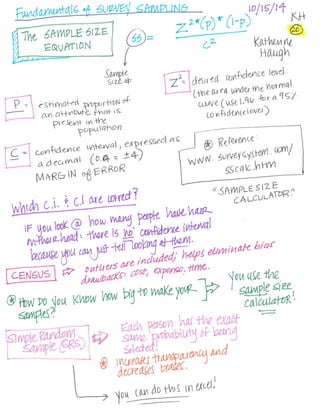 Fundamentals of SURVEY SAMPLING
10/15/14
KH
20
The SAMPLE SIZE EQUATION
SS = Z²*(p)*(1-p)
C²
Katherine Haugh
Sample size #
Z² = desired confidence level.
(the area under the normal
curve (use 1.96 for a 95%
confidence level)
P = estimated proportion of
an attribute that is
present in the
population
C = confidence interval, expressed as
a decimal (0.4 = ±4)
MARGIN of ERROR
* Reference:
www.surveysystem.com/
sscalc.htm
"SAMPLE SIZE
CALCULATOR"
Which C.I. & C.L are correct?
IF you look @ how many people have hair
on their head: there is no confidence interval
because you can just tell looking at them.
CENSUS outliers are included; helps eliminate bias
drawbacks: cost, expense, time.
* How DO you know how big to make your
samples?!
you use the
sample size
calculator!
Simple Random
Sample (SRS)
Each person has the exact
same probability of being
selected!
* increases transparency and
decreases biases.
you can do this in excel!